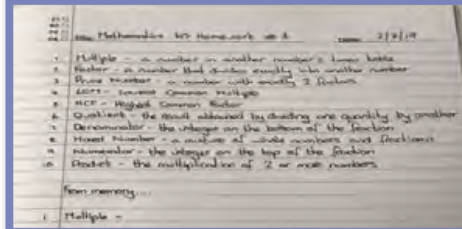 Title: Mathematics Homework # 1 Date: 2/9/19
1. Multiple - a number in another number's times table
2. Factor - a number that divides exactly into another number
3. Prime Number - a number with exactly 2 factors
4. LCM - Lowest Common Multiple
5. HCF - Highest Common Factor
6. Quotient - the result obtained by dividing one quantity by another
7. Denominator - the integer on the bottom of the fraction
8. Mixed Number - a mixture of whole numbers and fractions
9. Numerator - the integer on the top of the fraction
10. Product - the multiplication of 2 or more numbers
From memory....
1 Multiple -